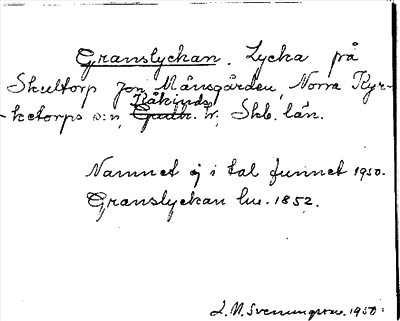 Granslyckan. Lycka på
Skultorp Jon Månsgården, Norra Kyr-
-ketorps s:n, Kåkinds h. Skb. län.
Namnet ej i tal funnet 1950.
Granslyckan hm. 1852.
L. M. Svenungsson. 1950.